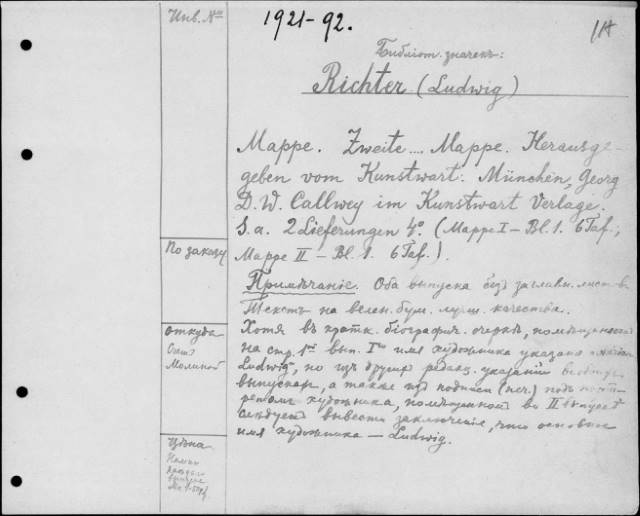 Инв. №
1921-92.
1A
Библіот. значекъ:
Richter (Ludwig)
Mappe. Zweite .... Mappe. Herausge-
geben vom Kunstwart. München, Georg
D. W. Callwey im Kunstwart Verlage.
S. a. 2 Lieferungen 4°. (Mappe I - Bl. 1. 6 Taf.;
Mappe II - Bl. 1. 6 Taf.).
По заказу
Примѣчаніе. Оба выпуска безъ заглавн. листовъ.
Текстъ на велен. бум. лучш. качества.
откуда
Хотя въ кратк. біографич. очеркѣ, помѣщенномъ
на стр. 1ой вып. Iго имя художника указано
Ludwig, но изъ другихъ редакц. указаній
выпускахъ, а также изъ подписи (печ.) подъ порт-
ретомъ художника, помѣщенной во II выпускѣ
слѣдуетъ вывести заключеніе, что основное
имя художника — Ludwig.
Цѣна